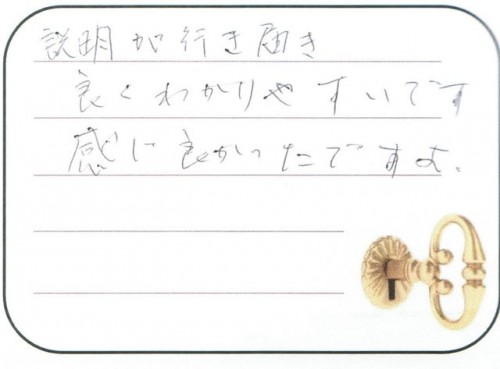 説明が行き届き
良くわかりやすいです
感じ良かったですよ。